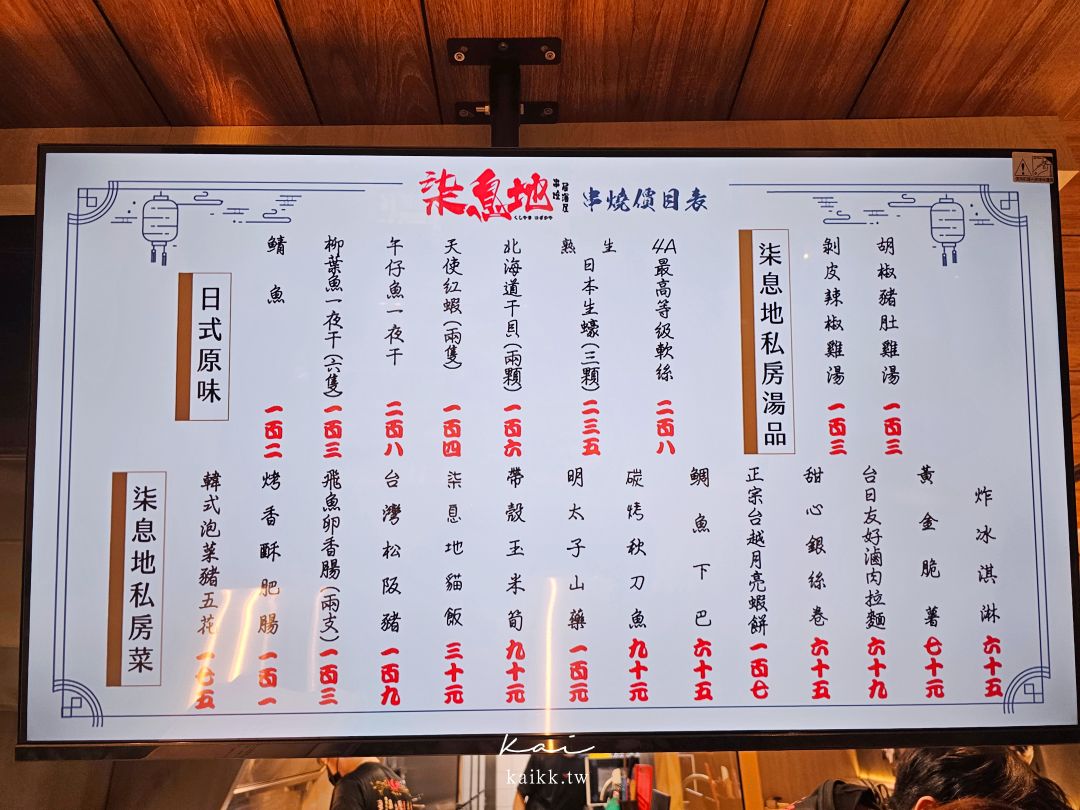 柒息地
串燒
居酒屋
くしやき いざかや
串燒價目表
日式原味
鯖魚
一百二
柳葉魚一夜干(六隻)
一百三
午仔魚一夜干
二百八
天使紅蝦(兩隻)
一百四
北海道干貝(兩顆)
一百六
熟 生
日本生蠔(三顆)
二三五
4A最高等级軟絲
二百八
柒息地私房湯品
剝皮辣椒雞湯
一百三
胡椒豬肚雞湯
一百三
柒息地私房菜
韓式泡菜豬五花
一七五
烤香酥肥腸
一百一
飛魚卵香腸(兩支)
一百三
台灣松阪豬
一百九
柒息地貓飯
三十元
帶殼玉米筍
九十元
明太子山藥
一百元
碳烤秋刀魚
九十元
鯛魚下巴
六十五
正宗台越月亮蝦餅
一百七
甜心銀絲卷
六十五
台日友好滷肉拉麵
六十九
黃金脆薯
七十元
炸冰淇淋
六十五
kai
kaikk.tw